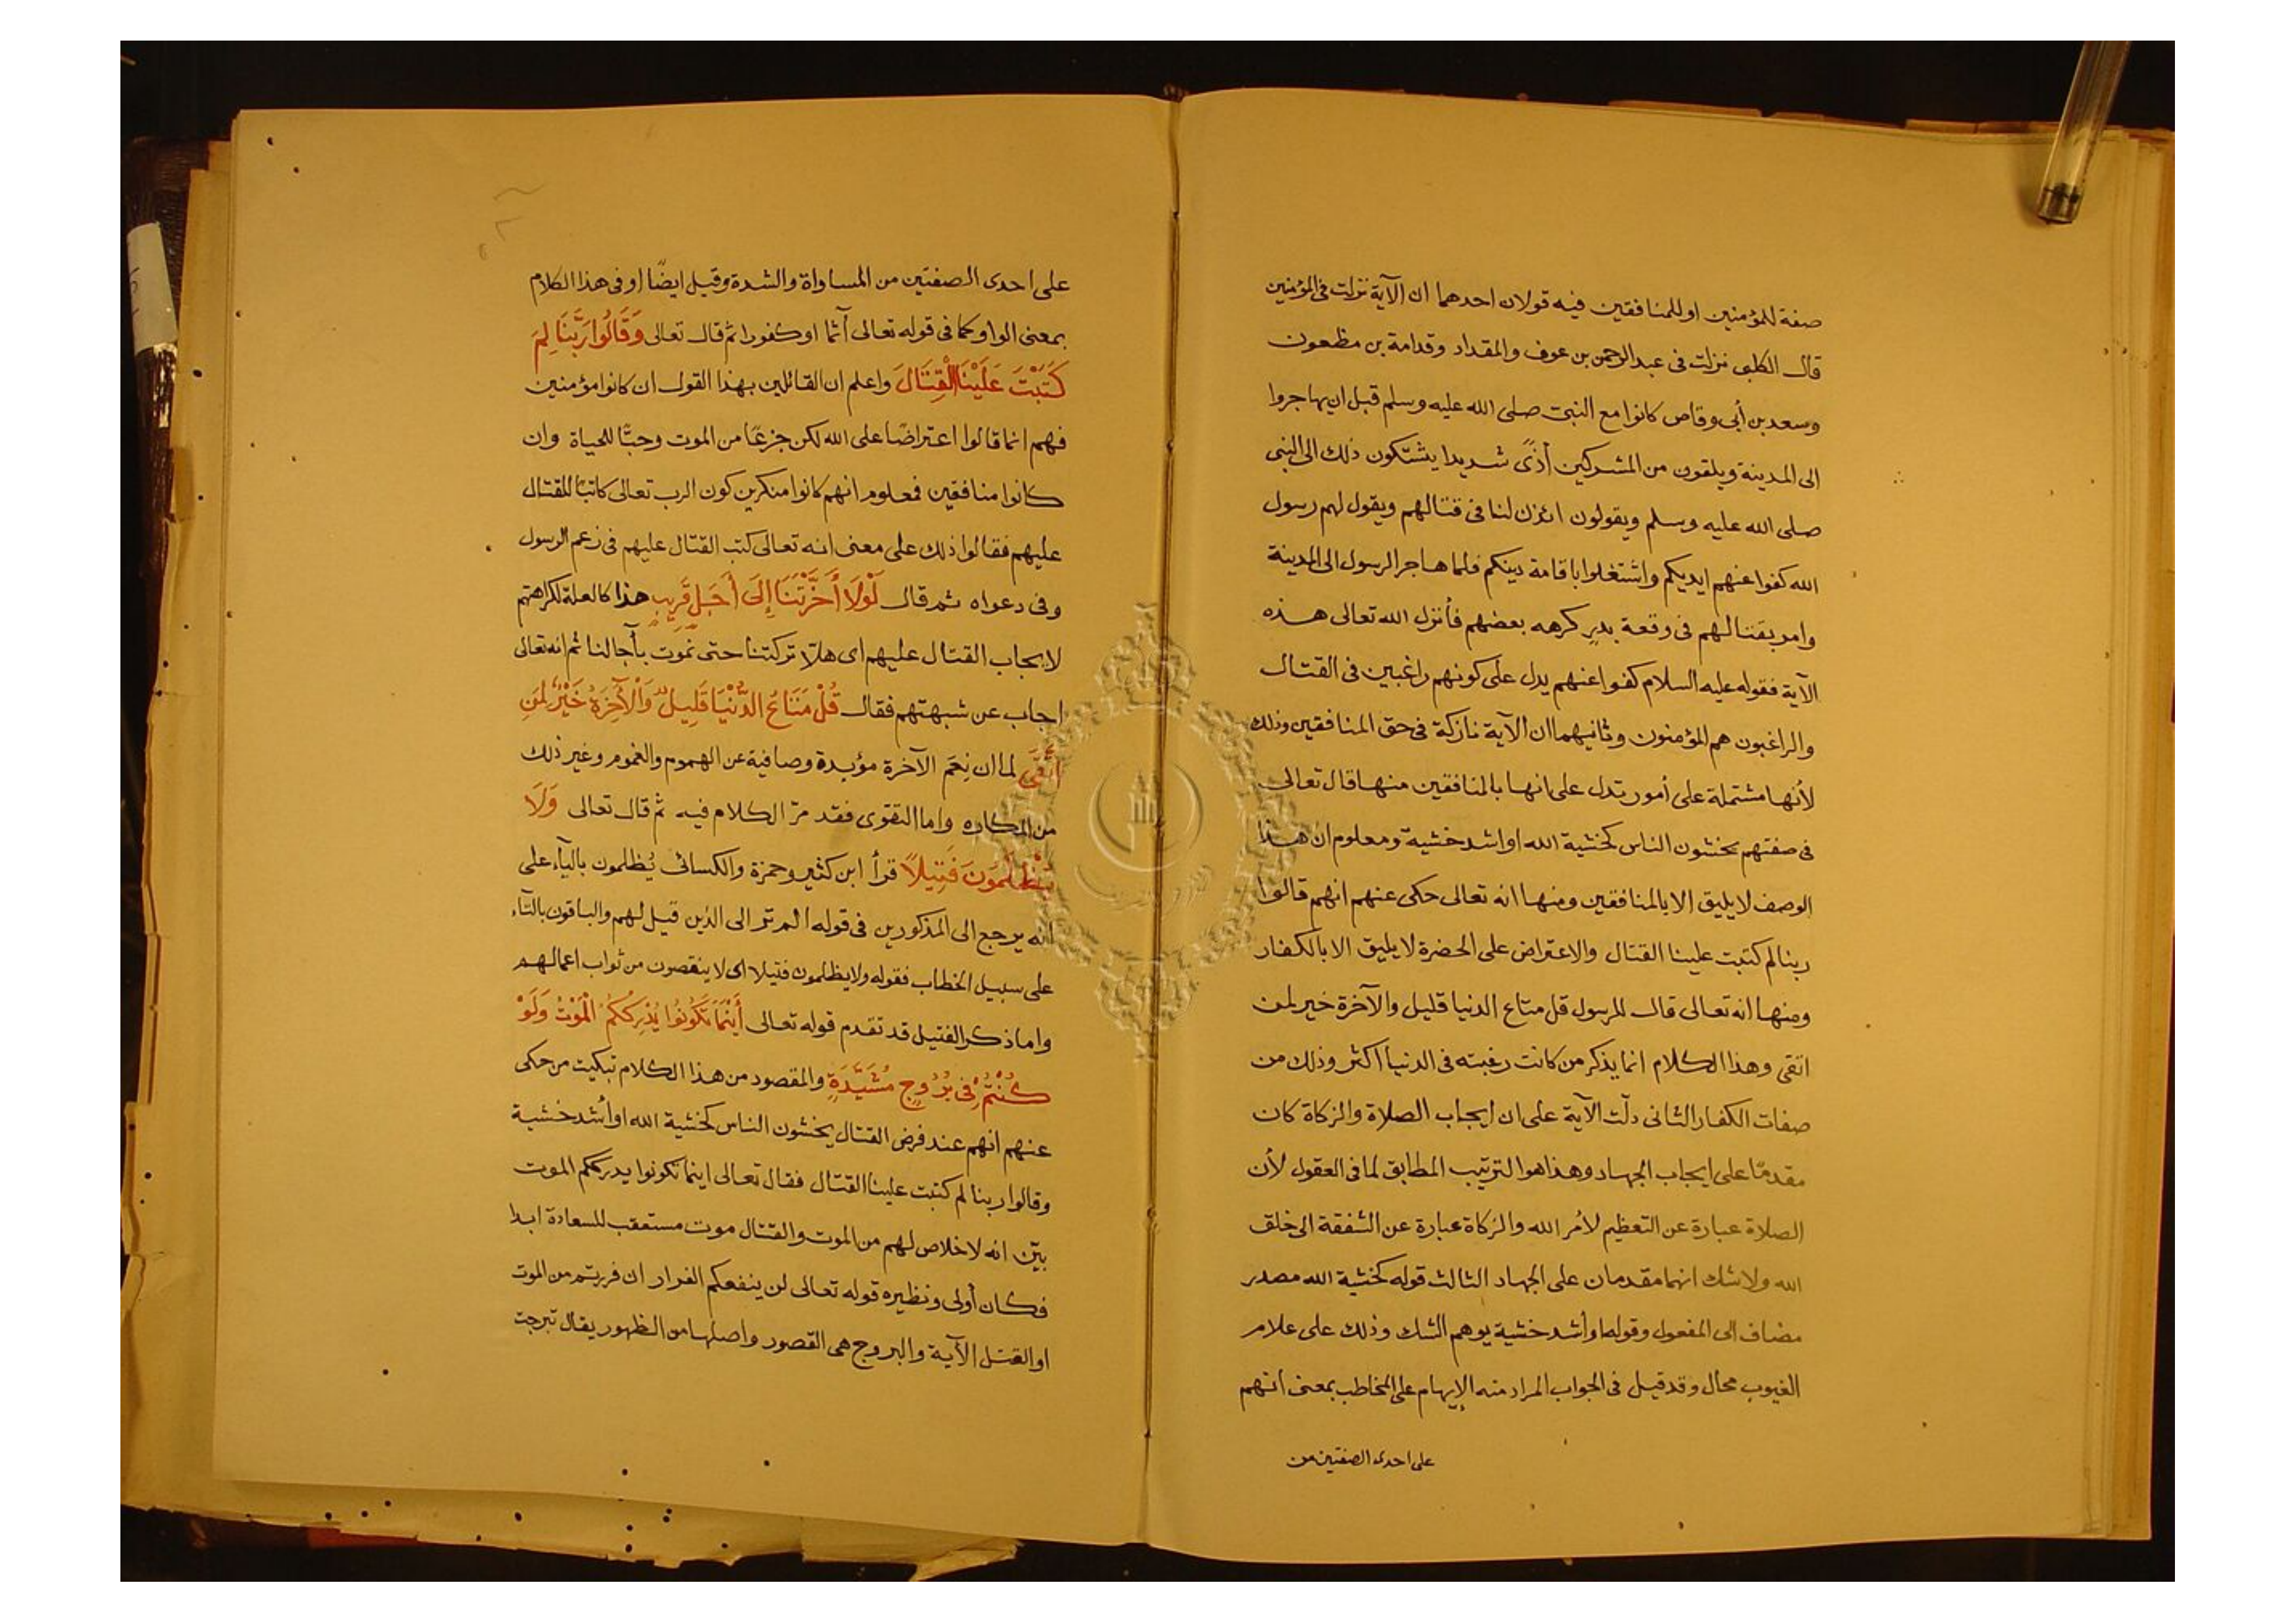 صفة للمؤمنين او للمنافقين فيه قولان احدهما ان الآية نزلت فى المؤمنين
قال الكلبى نزلت فى عبد الرحمن بن عوف والمقداد وقدامة بن مظعون
وسعد بن أبى وقاص كانوا مع النبى صلى الله عليه وسلم قبل ان يهاجروا
الى المدينة ويلقون من المشركين أذًى شديدا يشتكون ذلك الى النبى
صلى الله عليه وسلم ويقولون ائذن لنا فى قتالهم ويقول لهم رسول
الله كفوا عنهم ايديكم واشتغلوا باقامة دينكم فلما هاجر الرسول الى المدينة
وامر بقتالهم فى وقعة بدر كرهه بعضهم فأنزل الله تعالى هذه
الآية فقوله عليه السلام كفوا عنهم يدل على كونهم راغبين فى القتال
والراغبون هم المؤمنون وثانيهما ان الآية نازلة فى حق المنافقين وذلك
لأنها مشتملة على أمور تدل على انها بالمنافقين منها قال تعالى
فى صفتهم يخشون الناس كخشية الله او اشد خشية ومعلوم ان هذا
الوصف لا يليق الا بالمنافقين ومنها انه تعالى حكى عنهم انهم قالوا
ربنا لم كتبت علينا القتال والاعتراض على الحضرة لا يليق الا بالكفار
ومنها انه تعالى قال للرسول قل متاع الدنيا قليل والآخرة خير لمن
اتقى وهذا الكلام انما يذكر من كانت رغبته فى الدنيا اكثر وذلك من
صفات الكفار الثانى دلّت الآية على ان ايجاب الصلاة والزكاة كان
مقدمًا على ايجاب الجهاد وهذا هو الترتيب المطابق لما فى العقول لأن
الصلاة عبارة عن التعظيم لأمر الله والزكاة عبارة عن الشفقة الى خلق
الله ولا شك انهما مقدمان على الجهاد الثالث قوله كخشية الله مصدر
مضاف الى المفعول وقوله او أشد خشية يوهم الشك وذلك على علام
الغيوب محال وقد قيل فى الجواب المراد منه الإبهام على المخاطب بمعنى انهم
على احدى الصفتين من
على احدى الصفتين من المساواة والشدة وقيل ايضًا او فى هذا الكلام
بمعنى الواو كما فى قوله تعالى آثما او كفورا ثم قال تعالى وَقَالُوا رَبَّنَا لِمَ
كَتَبْتَ عَلَيْنَا الْقِتَالَ واعلم ان القائلين بهذا القول ان كانوا مؤمنين
فهم انما قالوا اعتراضًا على الله لكن جزعًا من الموت وحبًّا للحياة وان
كانوا منافقين فمعلوم انهم كانوا منكرين كون الرب تعالى كاتبًا للقتال
عليهم فقالوا ذلك على معنى انه تعالى كتب القتال عليهم فى زعم الرسول
وفى دعواه ثم قال لَوْلَا أَخَّرْتَنَا إِلَى أَجَلٍ قَرِيبٍ هذا كالعلة لكراهتهم
لايجاب القتال عليهم اى هلّا تركتنا حتى نموت بآجالنا ثم انه تعالى
اجاب عن شبهتهم فقال قُلْ مَتَاعُ الدُّنْيَا قَلِيلٌ وَالْآخِرَةُ خَيْرٌ لِمَنِ
اتَّقَى لما ان نِعَم الآخرة مؤبدة وصافية عن الهموم والغموم وغير ذلك
من المكاره واما التقوى فقد مرّ الكلام فيه ثم قال تعالى وَلَا
تُظْلَمُونَ فَتِيلًا قرأ ابن كثير وحمزة والكسائى يُظلمون بالياء على
انه يرجع الى المذكورين فى قوله الم تر الى الذين قيل لهم والباقون بالتاء
على سبيل الخطاب فقوله ولا يظلمون فتيلا اى لا ينقصون من ثواب اعمالهم
واما ذكر الفتيل قد تقدم قوله تعالى أَيْنَمَا تَكُونُوا يُدْرِكْكُمُ الْمَوْتُ وَلَوْ
كُنْتُمْ فِى بُرُوجٍ مُشَيَّدَةٍ والمقصود من هذا الكلام تبكيت من حكى
عنهم انهم عند فرض القتال يخشون الناس كخشية الله او أشد خشية
وقالوا ربنا لم كتبت علينا القتال فقال تعالى اينما تكونوا يدرككم الموت
بيّن انه لا خلاص لهم من الموت والقتال موت مستعقب للسعادة ابدا
فكان أولى ونظيره قوله تعالى لن ينفعكم الفرار ان فررتم من الموت
او القتل الآية والبروج هى القصور واصلها من الظهور يقال تبرجت